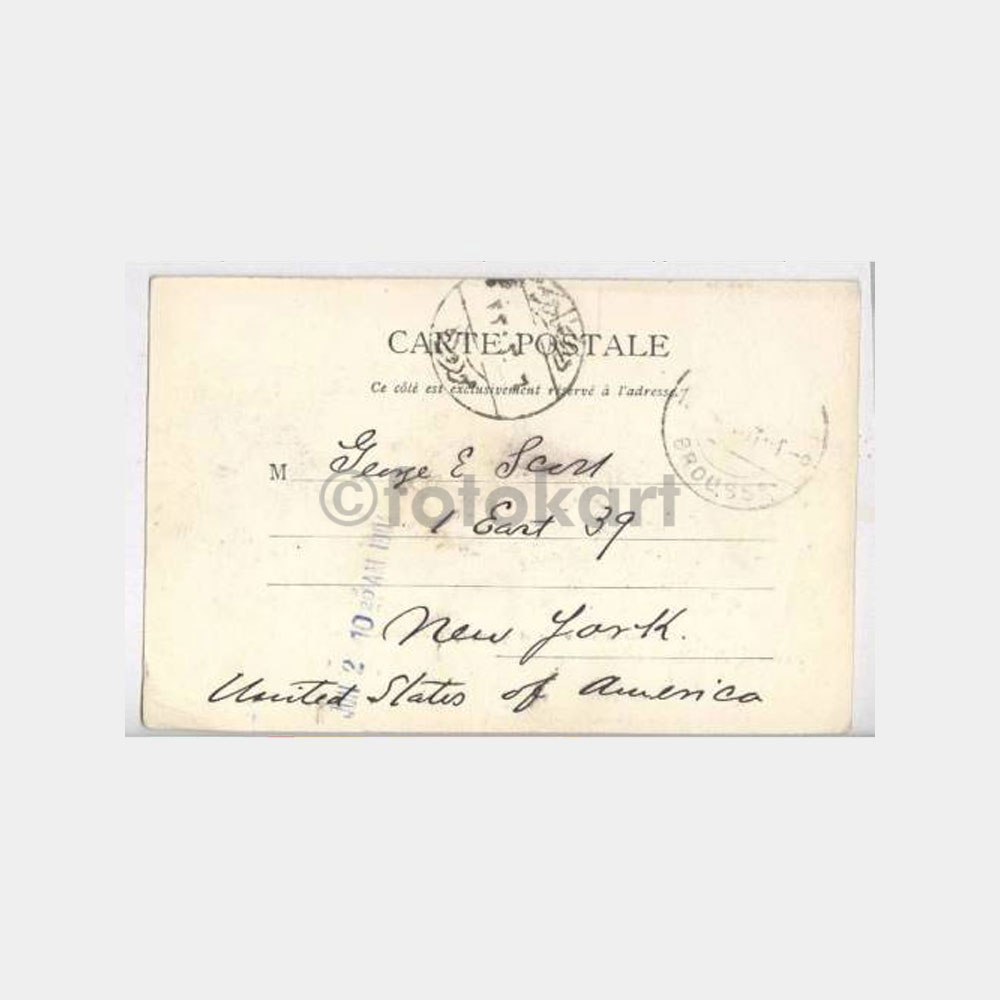 CARTE POSTALE
Ce côté est exclusivement réservé à l'adresse.
BROUSSE
M George E Scott
©fotokart
1 East 39
10 20 AM 1911
New York.
JUN 2
United States of America